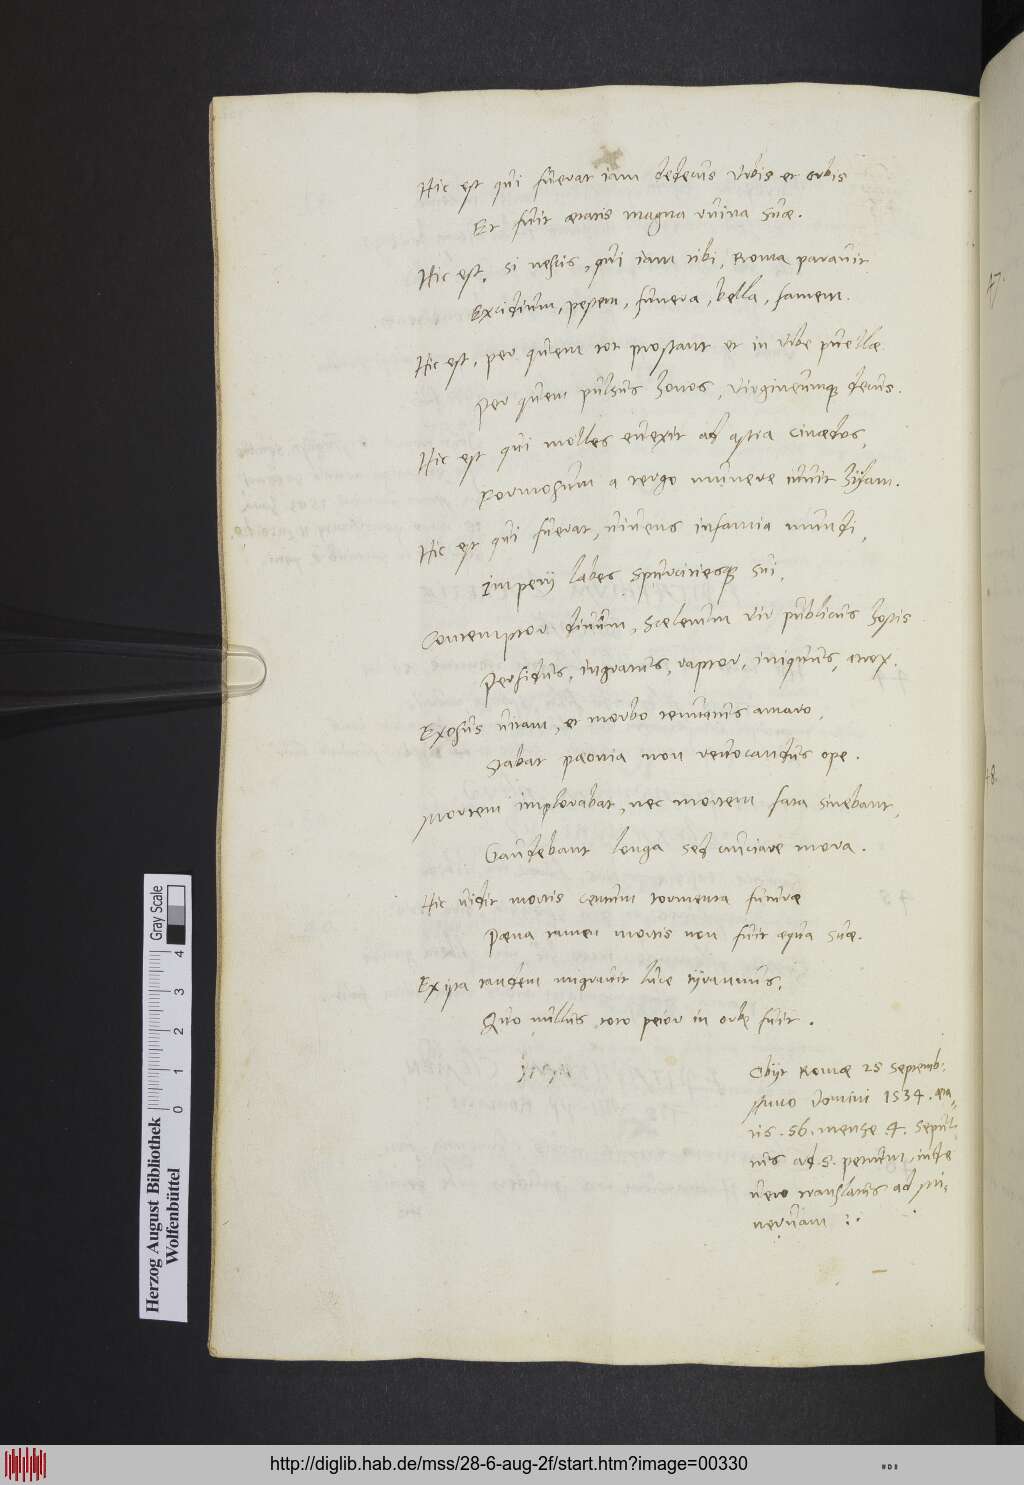 Hic est qui fuerat iam dedecus Vrbis et orbis
Et fuit aetatis magna ruina suae.
Hic est, si nescis, qui iam tibi, Roma parauit
Excidium, pestem, funera, bella, famem.
Hic est, per quem tot prostant et in Vrbe puellae
per quem pulsus honos, virgineumq; decus.
Hic est qui molles euexit ad astra cinaedos,
Formosum a tergo munere iuuit Hylam.
Hic est qui fuerat, uiuens infamia mundi,
Imperij labes spurcitiesq; sui,
Contemptor diuum, scelerum vir publicus hostis
Perfidus, ingratus, raptor, iniquus, atrox.
Exosus uitam, et morbo tentatus amaro,
Stabat paeonia non reuocandus ope.
Mortem implorabat, nec mortem fata sinebant,
Gaudebant longa sed cruciare mora.
Hic uidit mortis centum tormenta futurae
Paena tamen mortis non fuit aequa suae.
Exista tandem migrauit luce tyrannus,
Quo nullus toto peior in orbe fuit.
Obijt Romae 25 Septemb:
Anno Domini 1534. aeta=
tis. 56. mense 4. Sepul=
tus ad S. petrum, inde
uero translatus ad Mi,
neruam :.
47.
48.
Herzog August Bibliothek
Wolfenbüttel
Gray Scale
0 1 2 3 4
http://diglib.hab.de/mss/28-6-aug-2f/start.htm?image=00330